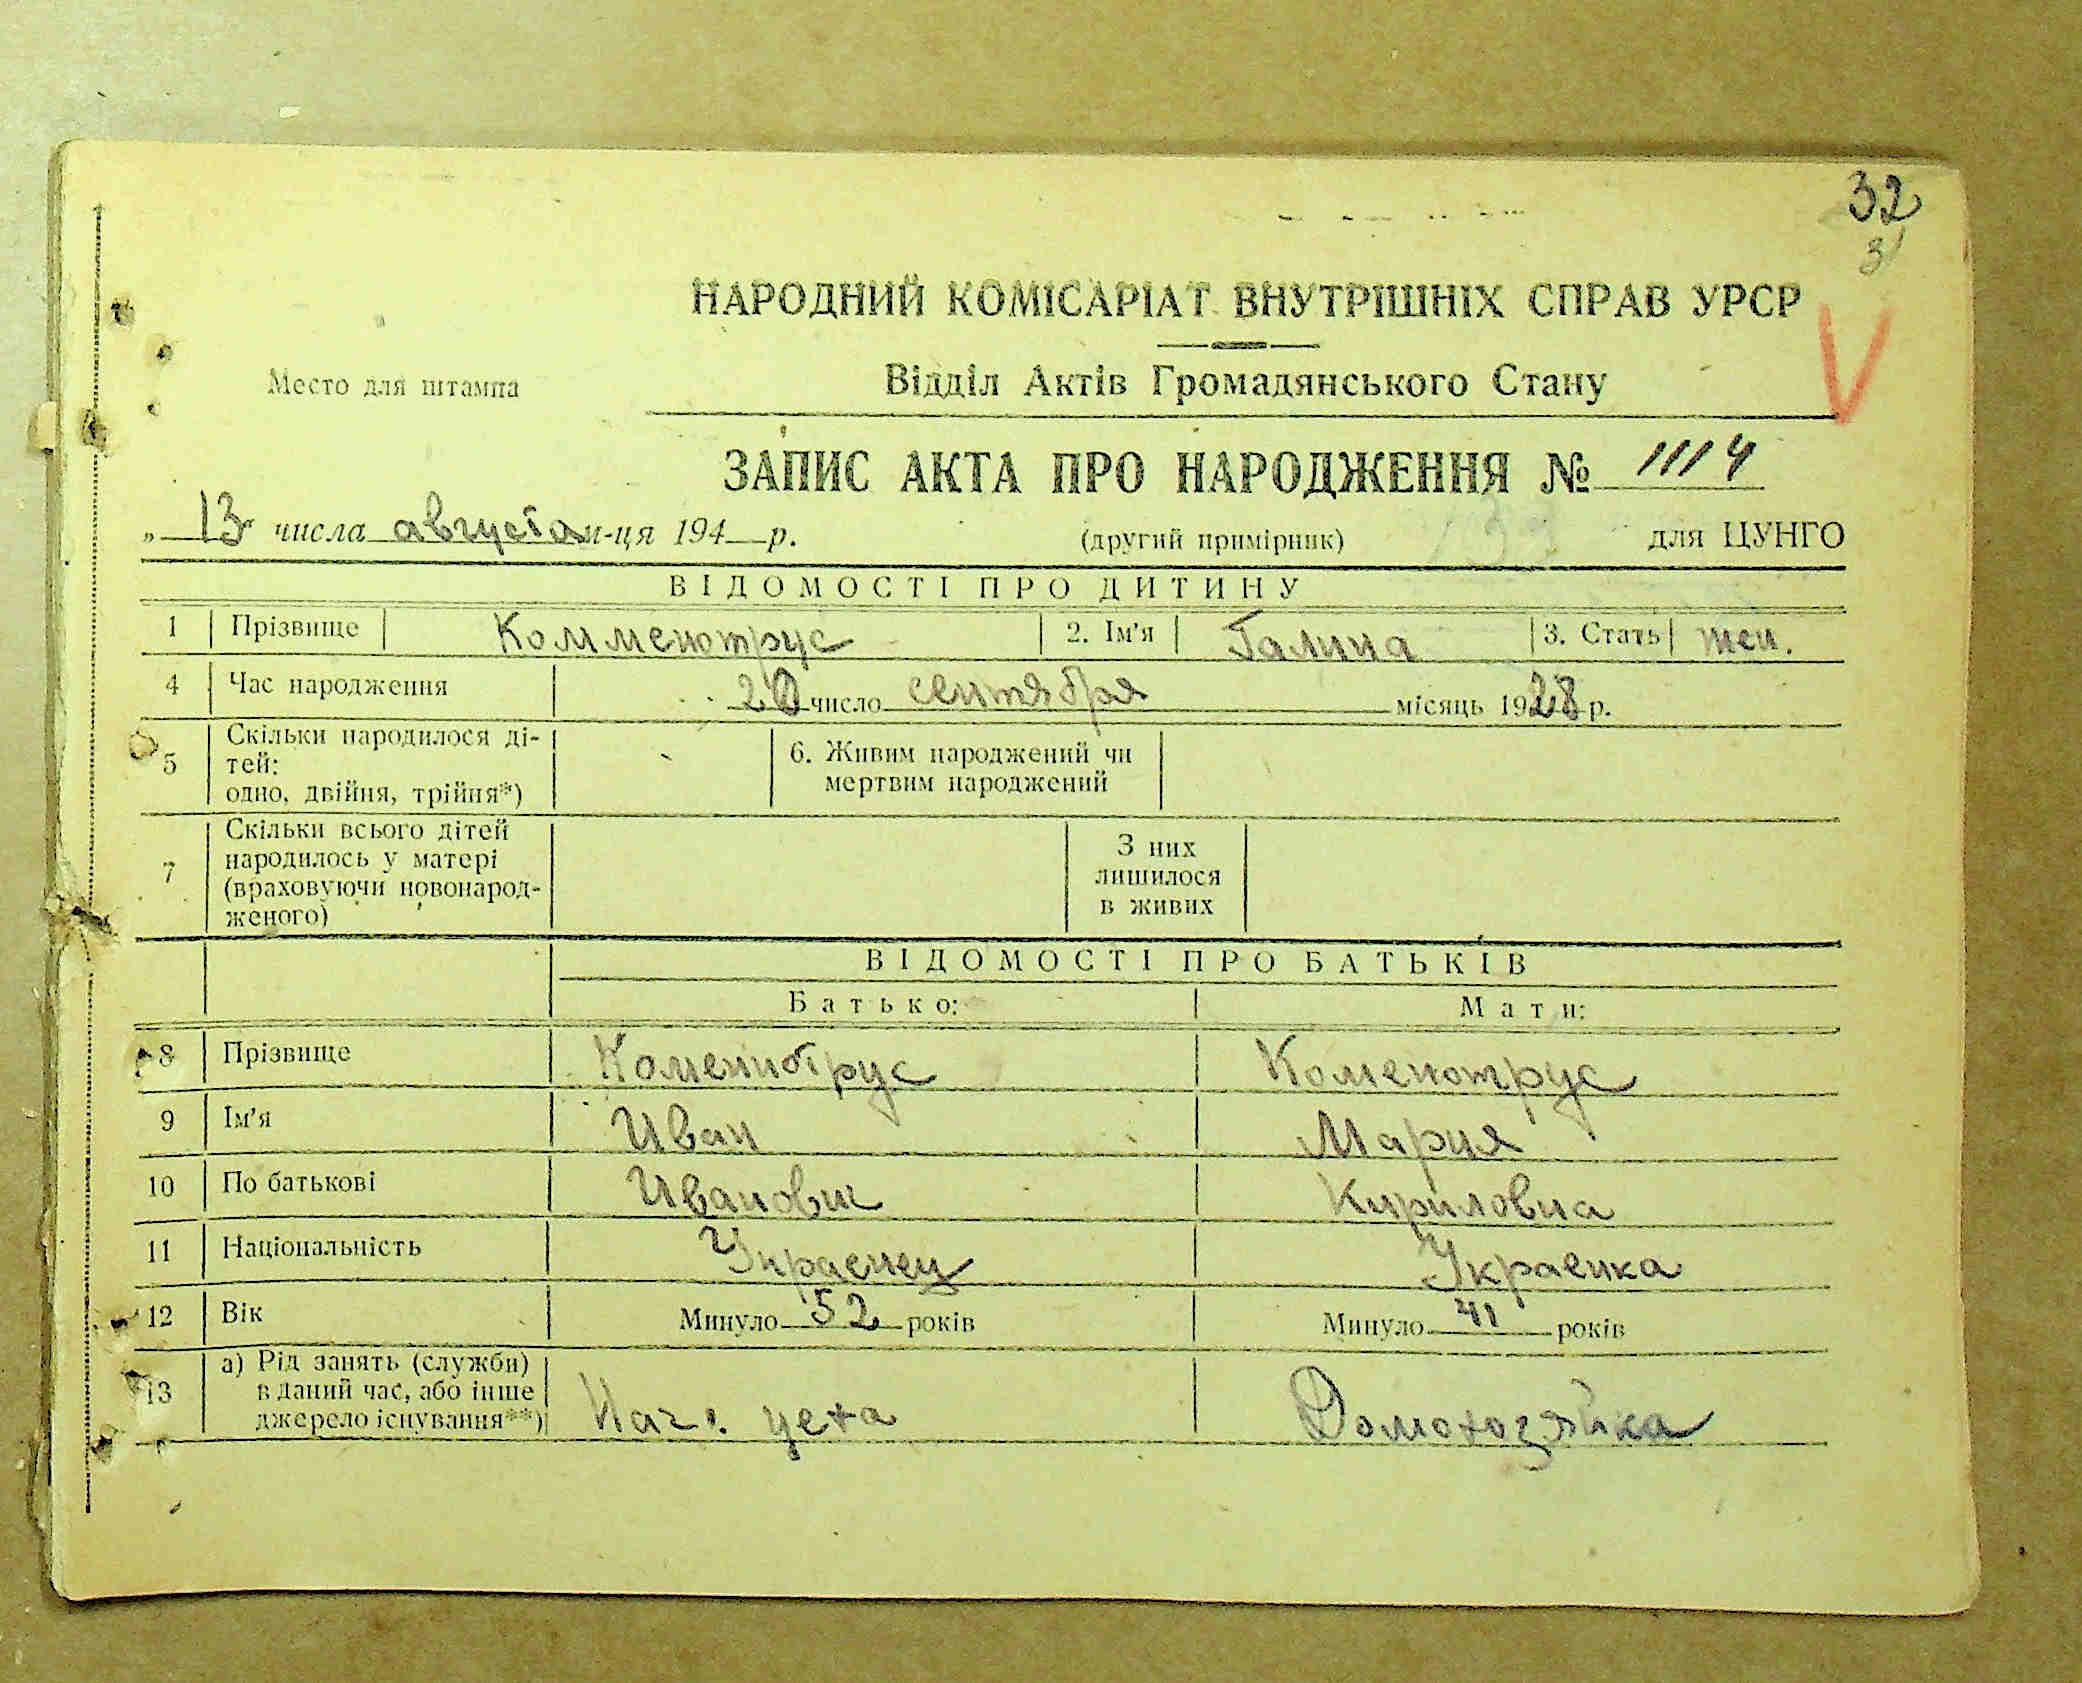 32
3
НАРОДНИЙ КОМІСАРІАТ ВНУТРІШНІХ СПРАВ УРСР
Место для штампа
Відділ Актів Громадянського Стану
ЗАПИС АКТА ПРО НАРОДЖЕННЯ № 1114
„ 13 числа августа м-ця 194 р. (другий примірник) для ЦУНГО
ВІДОМОСТІ ПРО ДИТИНУ
1 Прізвище Комменотрус 2. Ім'я Галина 3. Стать жен.
4 Час народження 20 число сентября місяць 1928 р.
5 Скільки народилося ді-
тей:
одно, двійня, трійня*)
6. Живим народжений чи
мертвим народжений
7 Скільки всього дітей
народилось у матері
(враховуючи новонарод-
женого)
З них
лишилося
в живих
ВІДОМОСТІ ПРО БАТЬКІВ
Батько: Мати:
8 Прізвище Коменнотрус Коменотрус
9 Ім'я Иван Мария
10 По батькові Иванович Кириловна
11 Національність Украенец Украенка
12 Вік Минуло 52 років Минуло 41 років
13 а) Рід занять (служби)
в даний час, або інше
джерело існування**)
Нач. цеха Домохозяйка